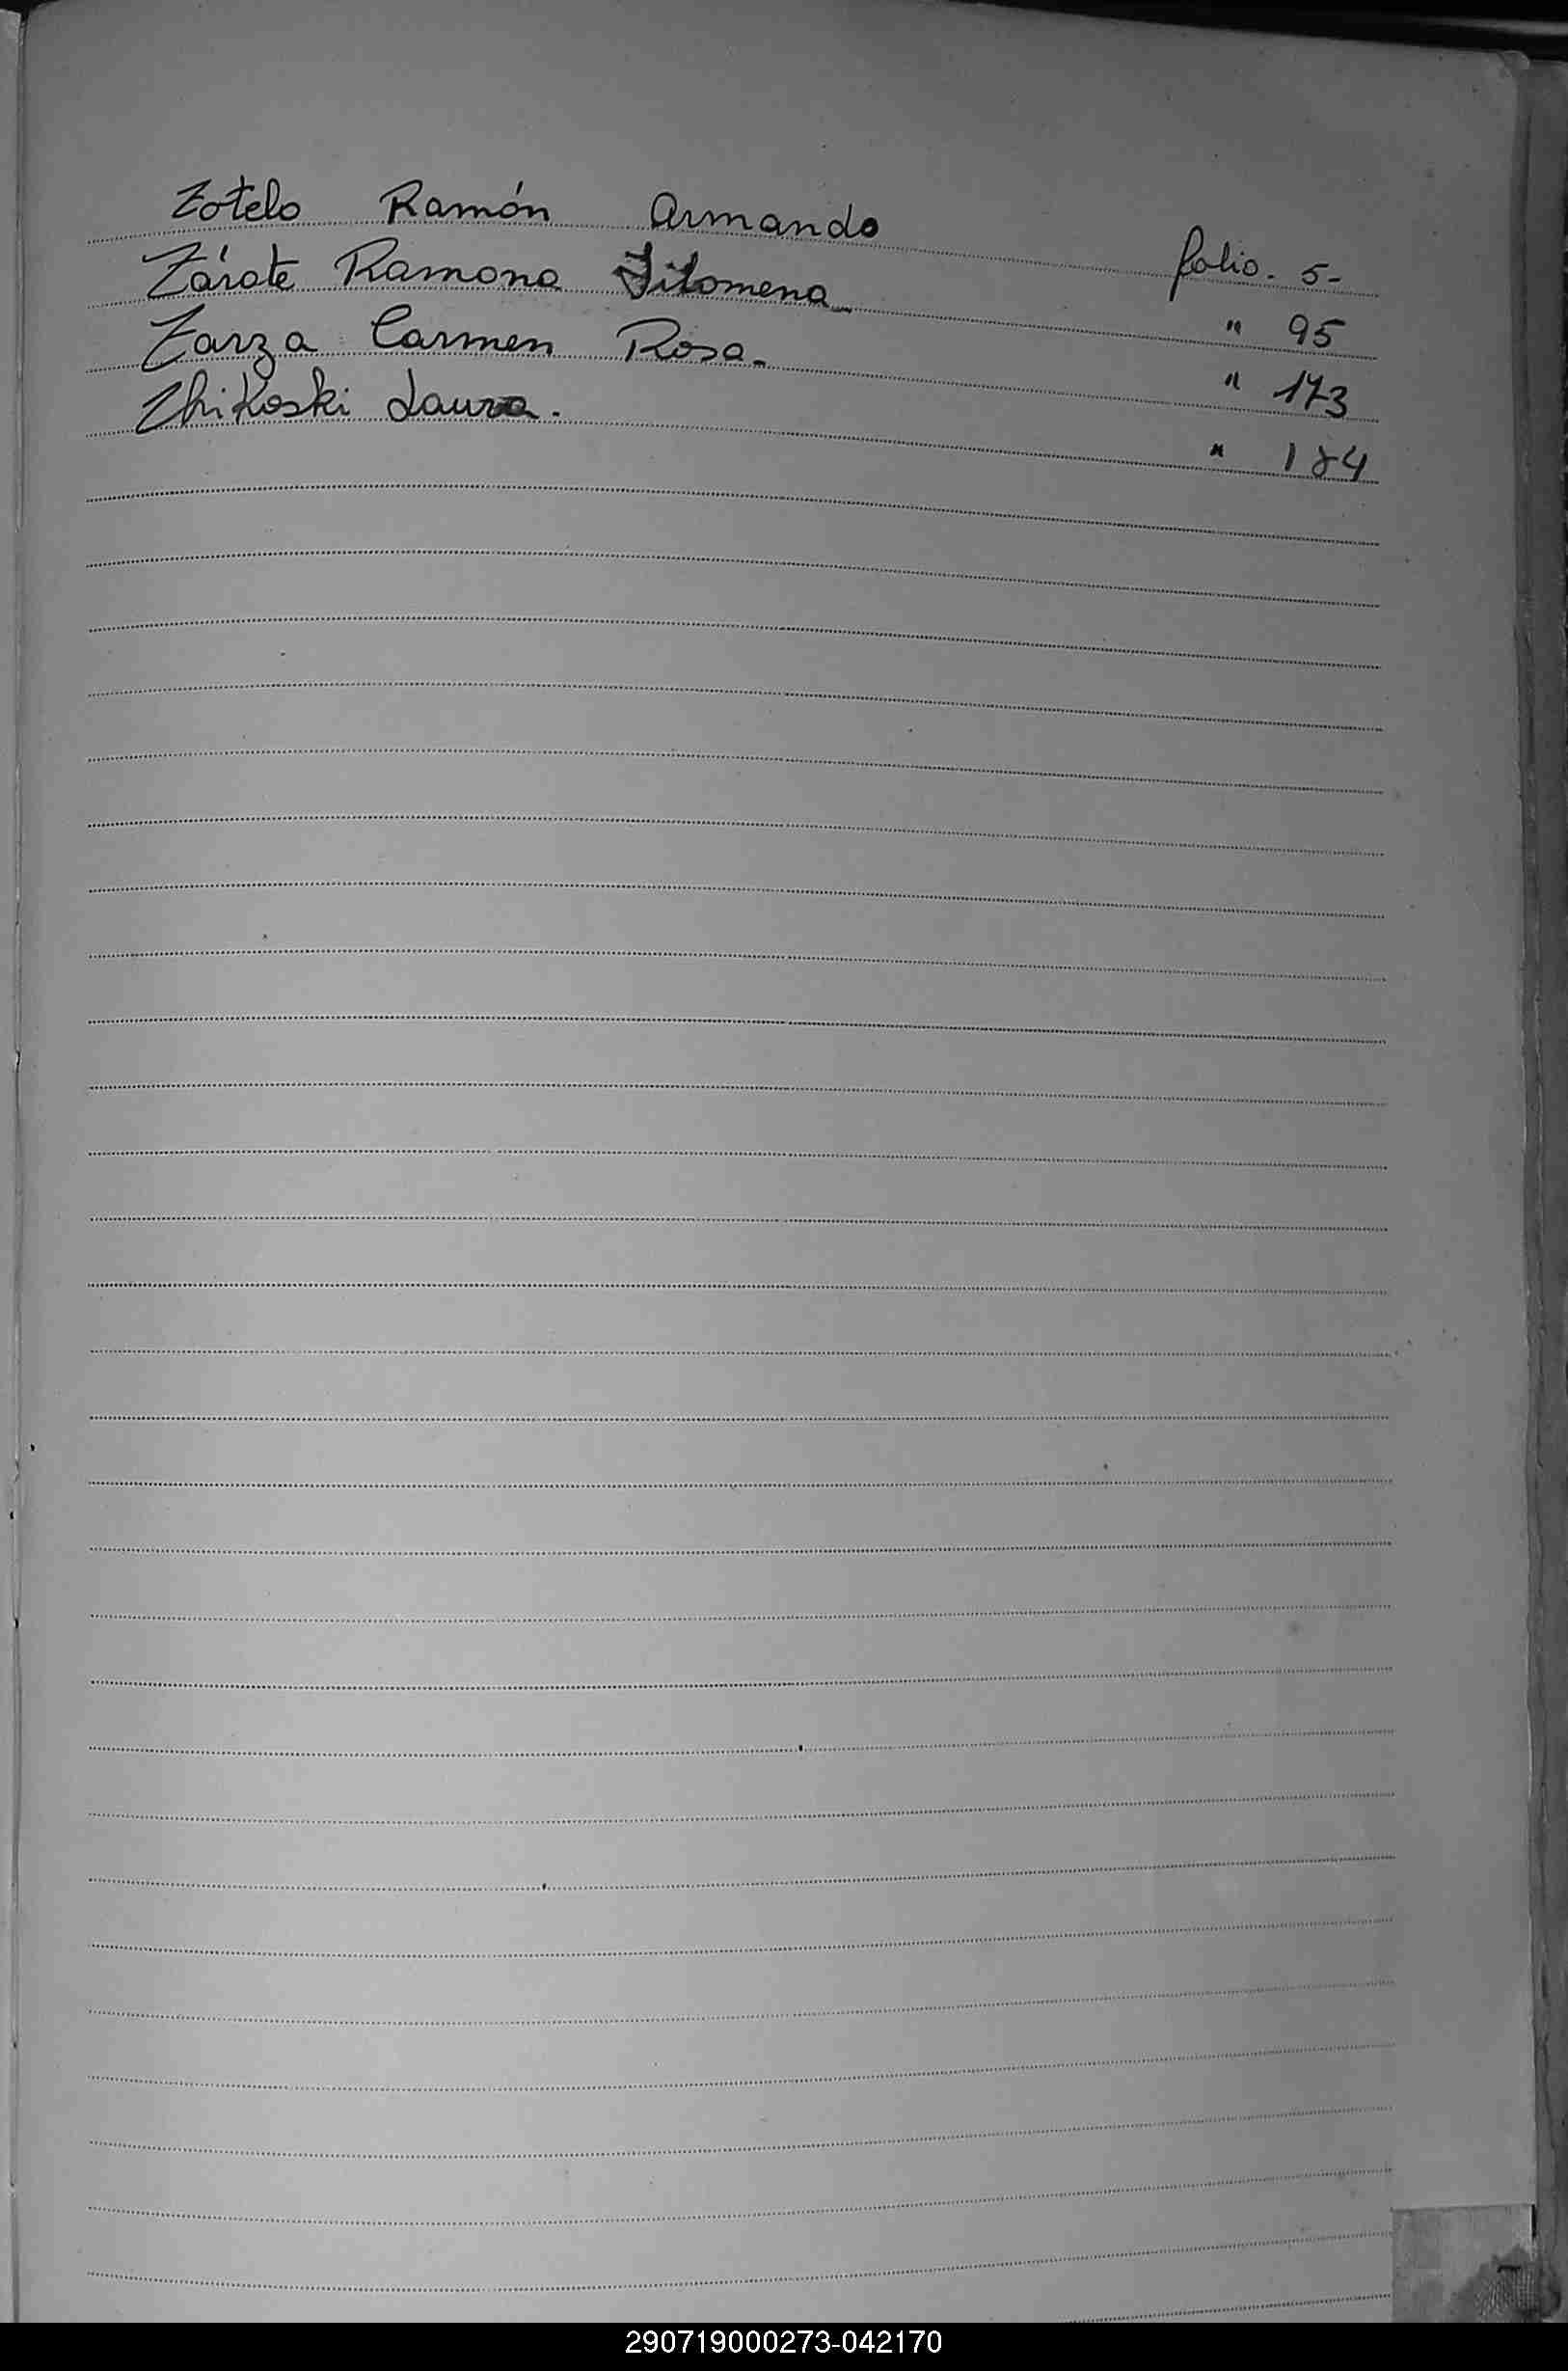 Zotelo Ramón Armando folio. 5-
Zárate Ramona Filomena " 95
Zarza Carmen Rosa. " 173
Zhikoski Laura. " 184
290719000273-042170